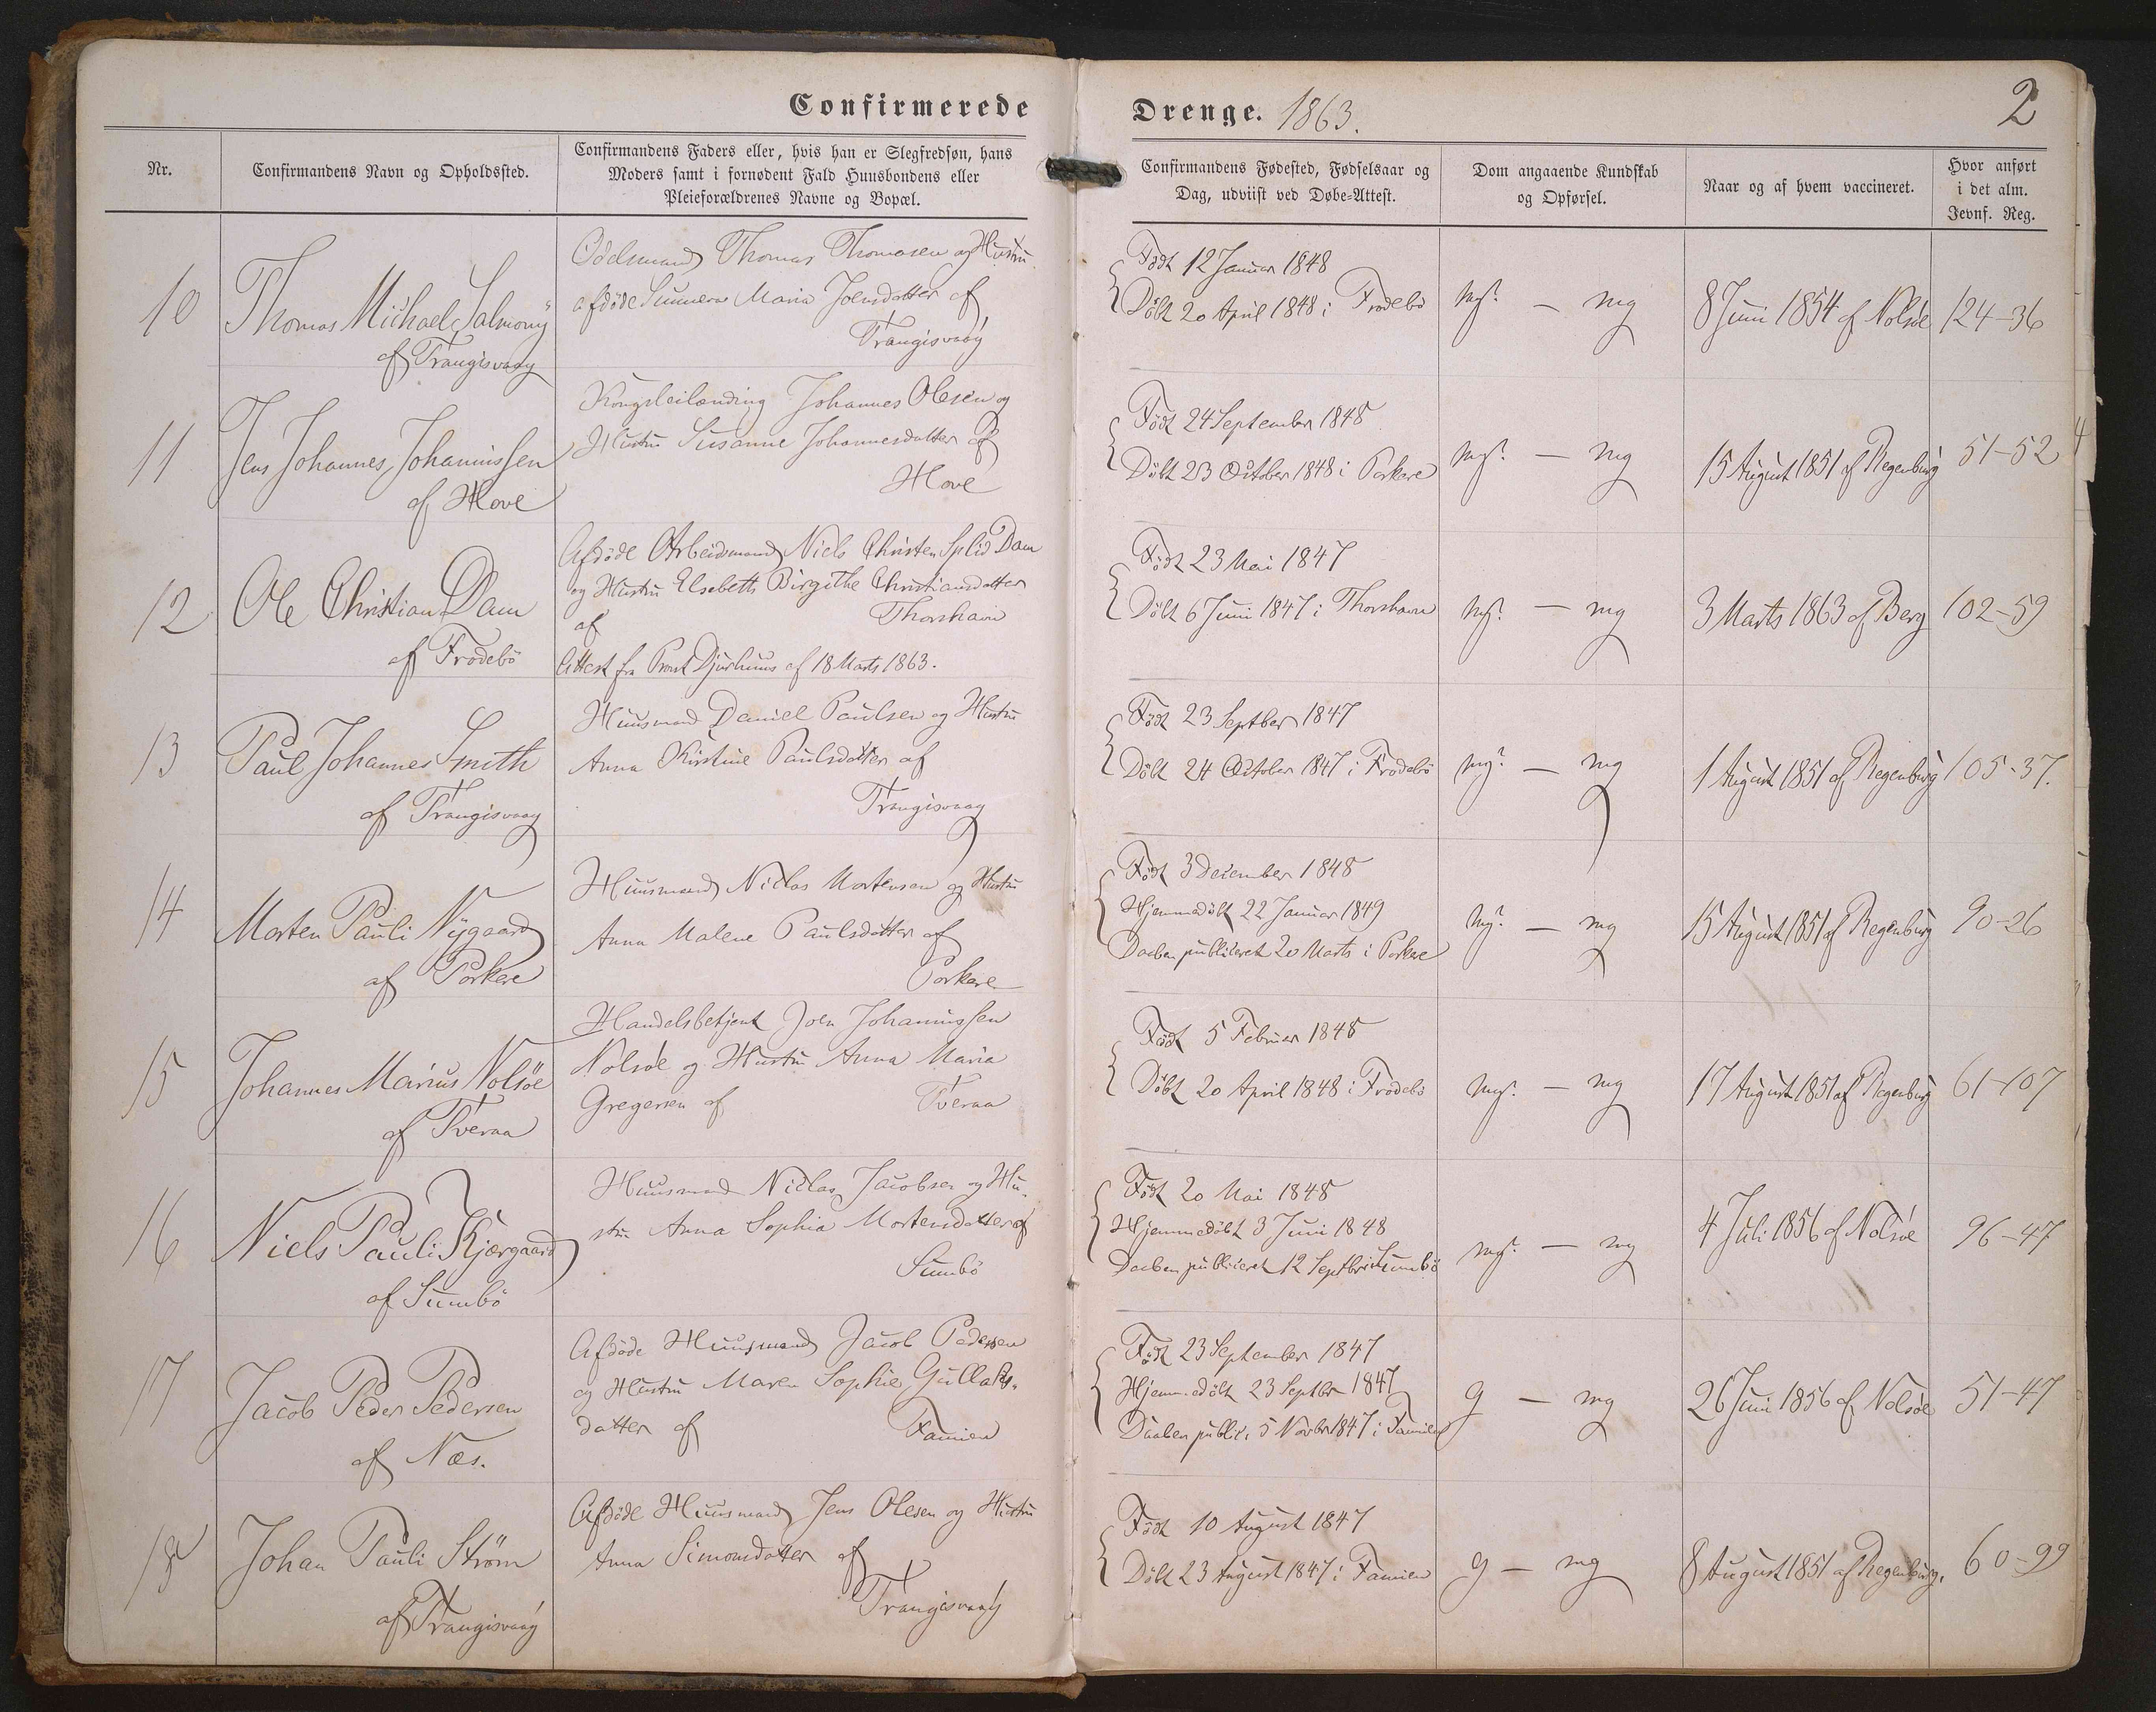 Confirmerede
Drenge. 1863.
2
Nr.
Confirmandens Navn og Opholdssted.
Confirmandens Faders eller, hvis han er Slegfredsøn, hans
Moders samt i fornødent Fald Huusbondens eller
Pleieforældrenes Navne og Bopæl.
Confirmandens Fødested, Fødselsaar og
Dag, udviist ved Døbe-Attest.
Dom angaaende Kundskab
og Opførsel.
Naar og af hvem vaccineret.
Hvor anført
i det alm.
Jevnf. Reg.
10
Thomas Michael Salmonÿ
af Trangisvaag
Odelsmand Thomas Thomasen og Hustru
afdøde Sunneva Maria Joensdatter af
Trangisvaag
Født 12 Januar 1848
Døbt 20 April 1848 i Frodebø
mg? — mg
8 Juni 1854 af Nolsøe
124-36
11
Jens Johannes Johannissen
af Hove
Kongsleilænding Johannes Olesen og
Hustru Susanne Johannesdatter af
Hove
Født 24 September 1848
Døbt 23 October 1848 i Porkere
mg? — mg
15 August 1851 af Regenburg
51-52
4
12
Ole Christian Dam
af Frodebø
Afdøde Arbeidsmand Niels Christen Splid Dam
og Hustru Elsebeth Birgithe Christiansdatter
af Thorshavn
Attest fra Provst Djurhuus af 18 Marts 1863.
Født 23 Mai 1847
Døbt 6 Juni 1847 i Thorshavn
mg? — mg
3 Marts 1863 af Berg
102-59
13
Paul Johannes Smith
af Trangisvaag
Huusmand Daniel Paulsen og Hustru
Anna Kirstine Paulsdatter af
Trangisvaag
Født 23 Septber 1847
Døbt 24 October 1847 i Frodebø
mg? — mg
1 August 1851 af Regenburg
105-37.
14
Morten Pauli Nygaard
af Porkere
Huusmand Niclas Mortensen og Hustru
Anna Malene Paulsdatter af
Porkere
Født 3 December 1848
Hjemmedøbt 22 Januar 1849
Daaben publiceret 20 Marts i Porkere
mg? — mg
15 August 1851 af Regenburg
90-26
15
Johannes Marius Nolsöe
af Tveraa
Handelsbetjent Joen Johannissen
Nolsöe og Hustru Anna Maria
Gregersen af Tveraa
Født 5 Februar 1848
Døbt 20 April 1848 i Frodebø
mg? — mg
17 August 1851 af Regenburg
61-107
16
Niels Pauli Kjærgaard
af Sumbø
Huusmand Niclas Jacobsen og Hu-
stru Anna Sophia Mortensdatter af
Sumbø
Født 20 Mai 1848
Hjemmedøbt 3 Juni 1848
Daaben publiceret 12 Septbr i Sumbø
mg? — mg
4 Juli 1856 af Nolsøe
96-47
17
Jacob Peder Pedersen
af Næs.
Afdøde Huusmand Jacob Pedersen
og Hustru Maren Sophie Gullaks-
datter af Famien
Født 23 September 1847
Hjemmedøbt 23 Septbr 1847
Daaben public. 5 Novbr 1847 i Famien
g — mg
26 Juni 1856 af Nolsøe
51-47
18
Johan Pauli Strøm
af Trangisvaag
Afdøde Huusmand Jens Olesen og Hustru
Anna Simonsdatter af
Trangisvaag
Født 10 August 1847
Døbt 23 August 1847 i Famien
g — mg
8 August 1851 af Regenburg.
60-99